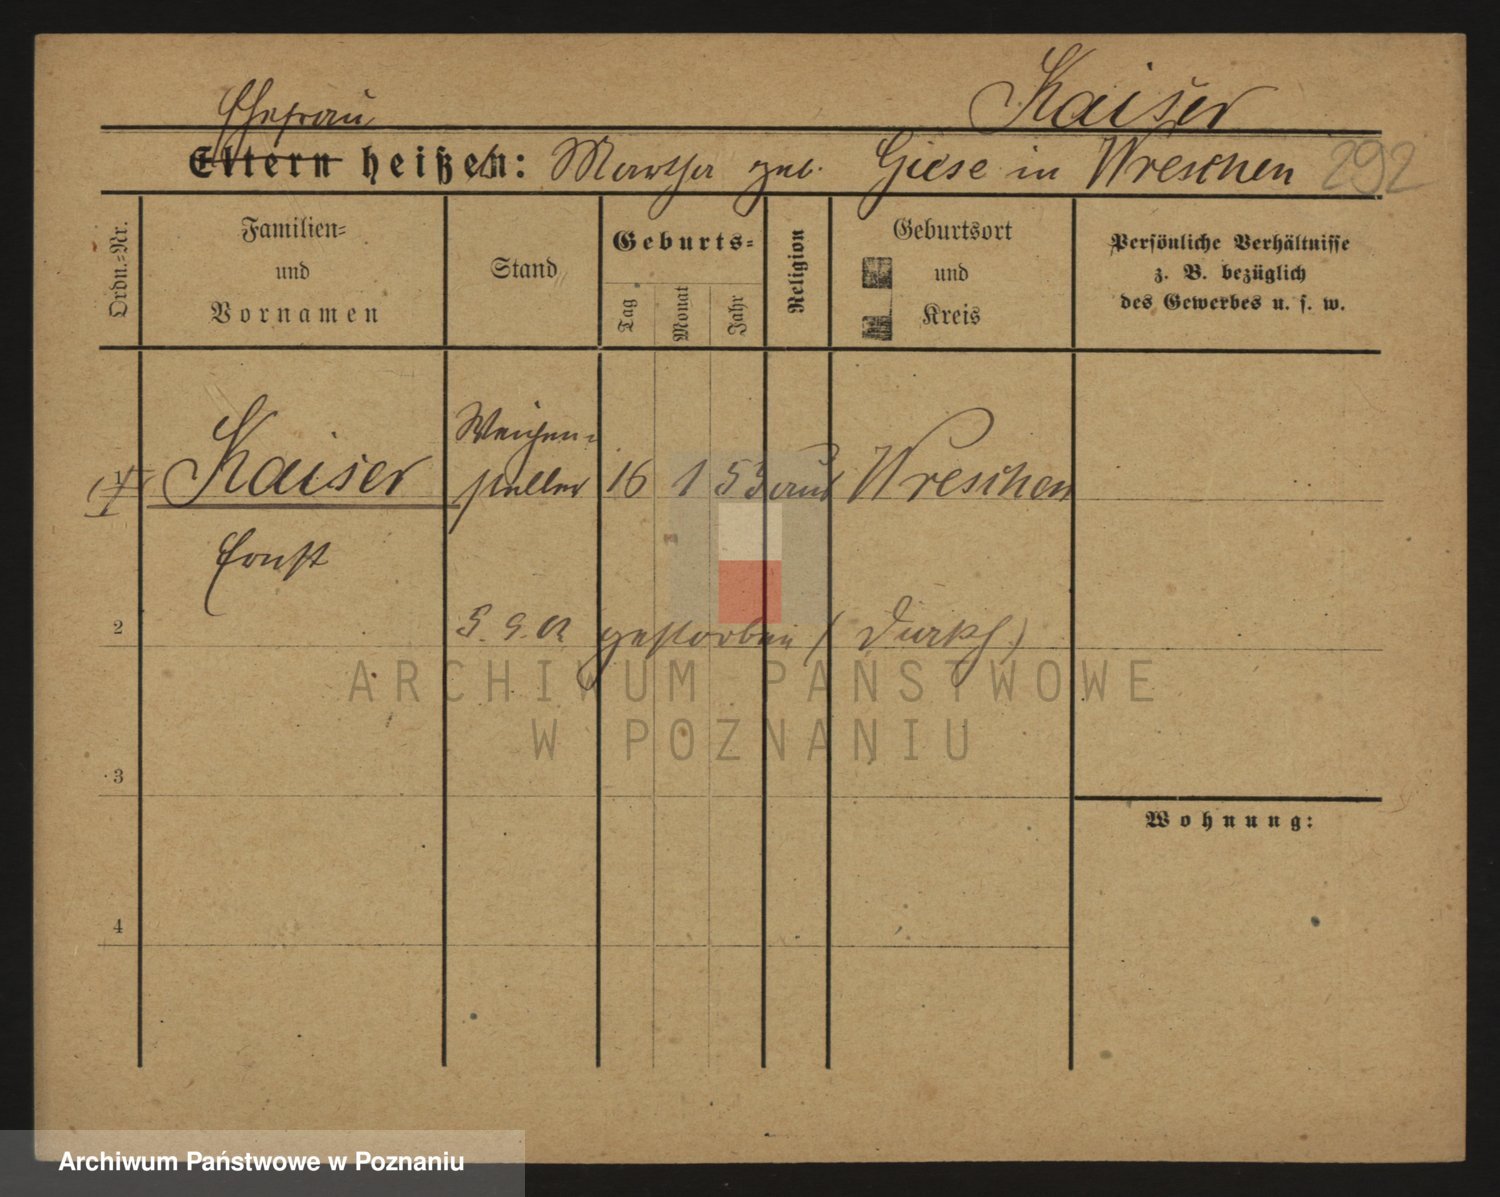 Kaiser
Ehefrau
Eltern heißen: Martha geb. Giese in Wreschen 292
Ordn.-Nr.
Familien- und Vornamen
Stand
Geburts-
Tag
Monat
Jahr
Religion
Geburtsort und Kreis
Persönliche Verhältnisse
z. B. bezüglich
des Gewerbes u. s. w.
1 Kaiser Weichen-
steller 16 1 53 Wreschen
Ernst
2
5. 9. 02 gestorben
ARCHIWUM PAŃSTWOWE
W POZNANIU
3
Wohnung:
4
Archiwum Państwowe w Poznaniu